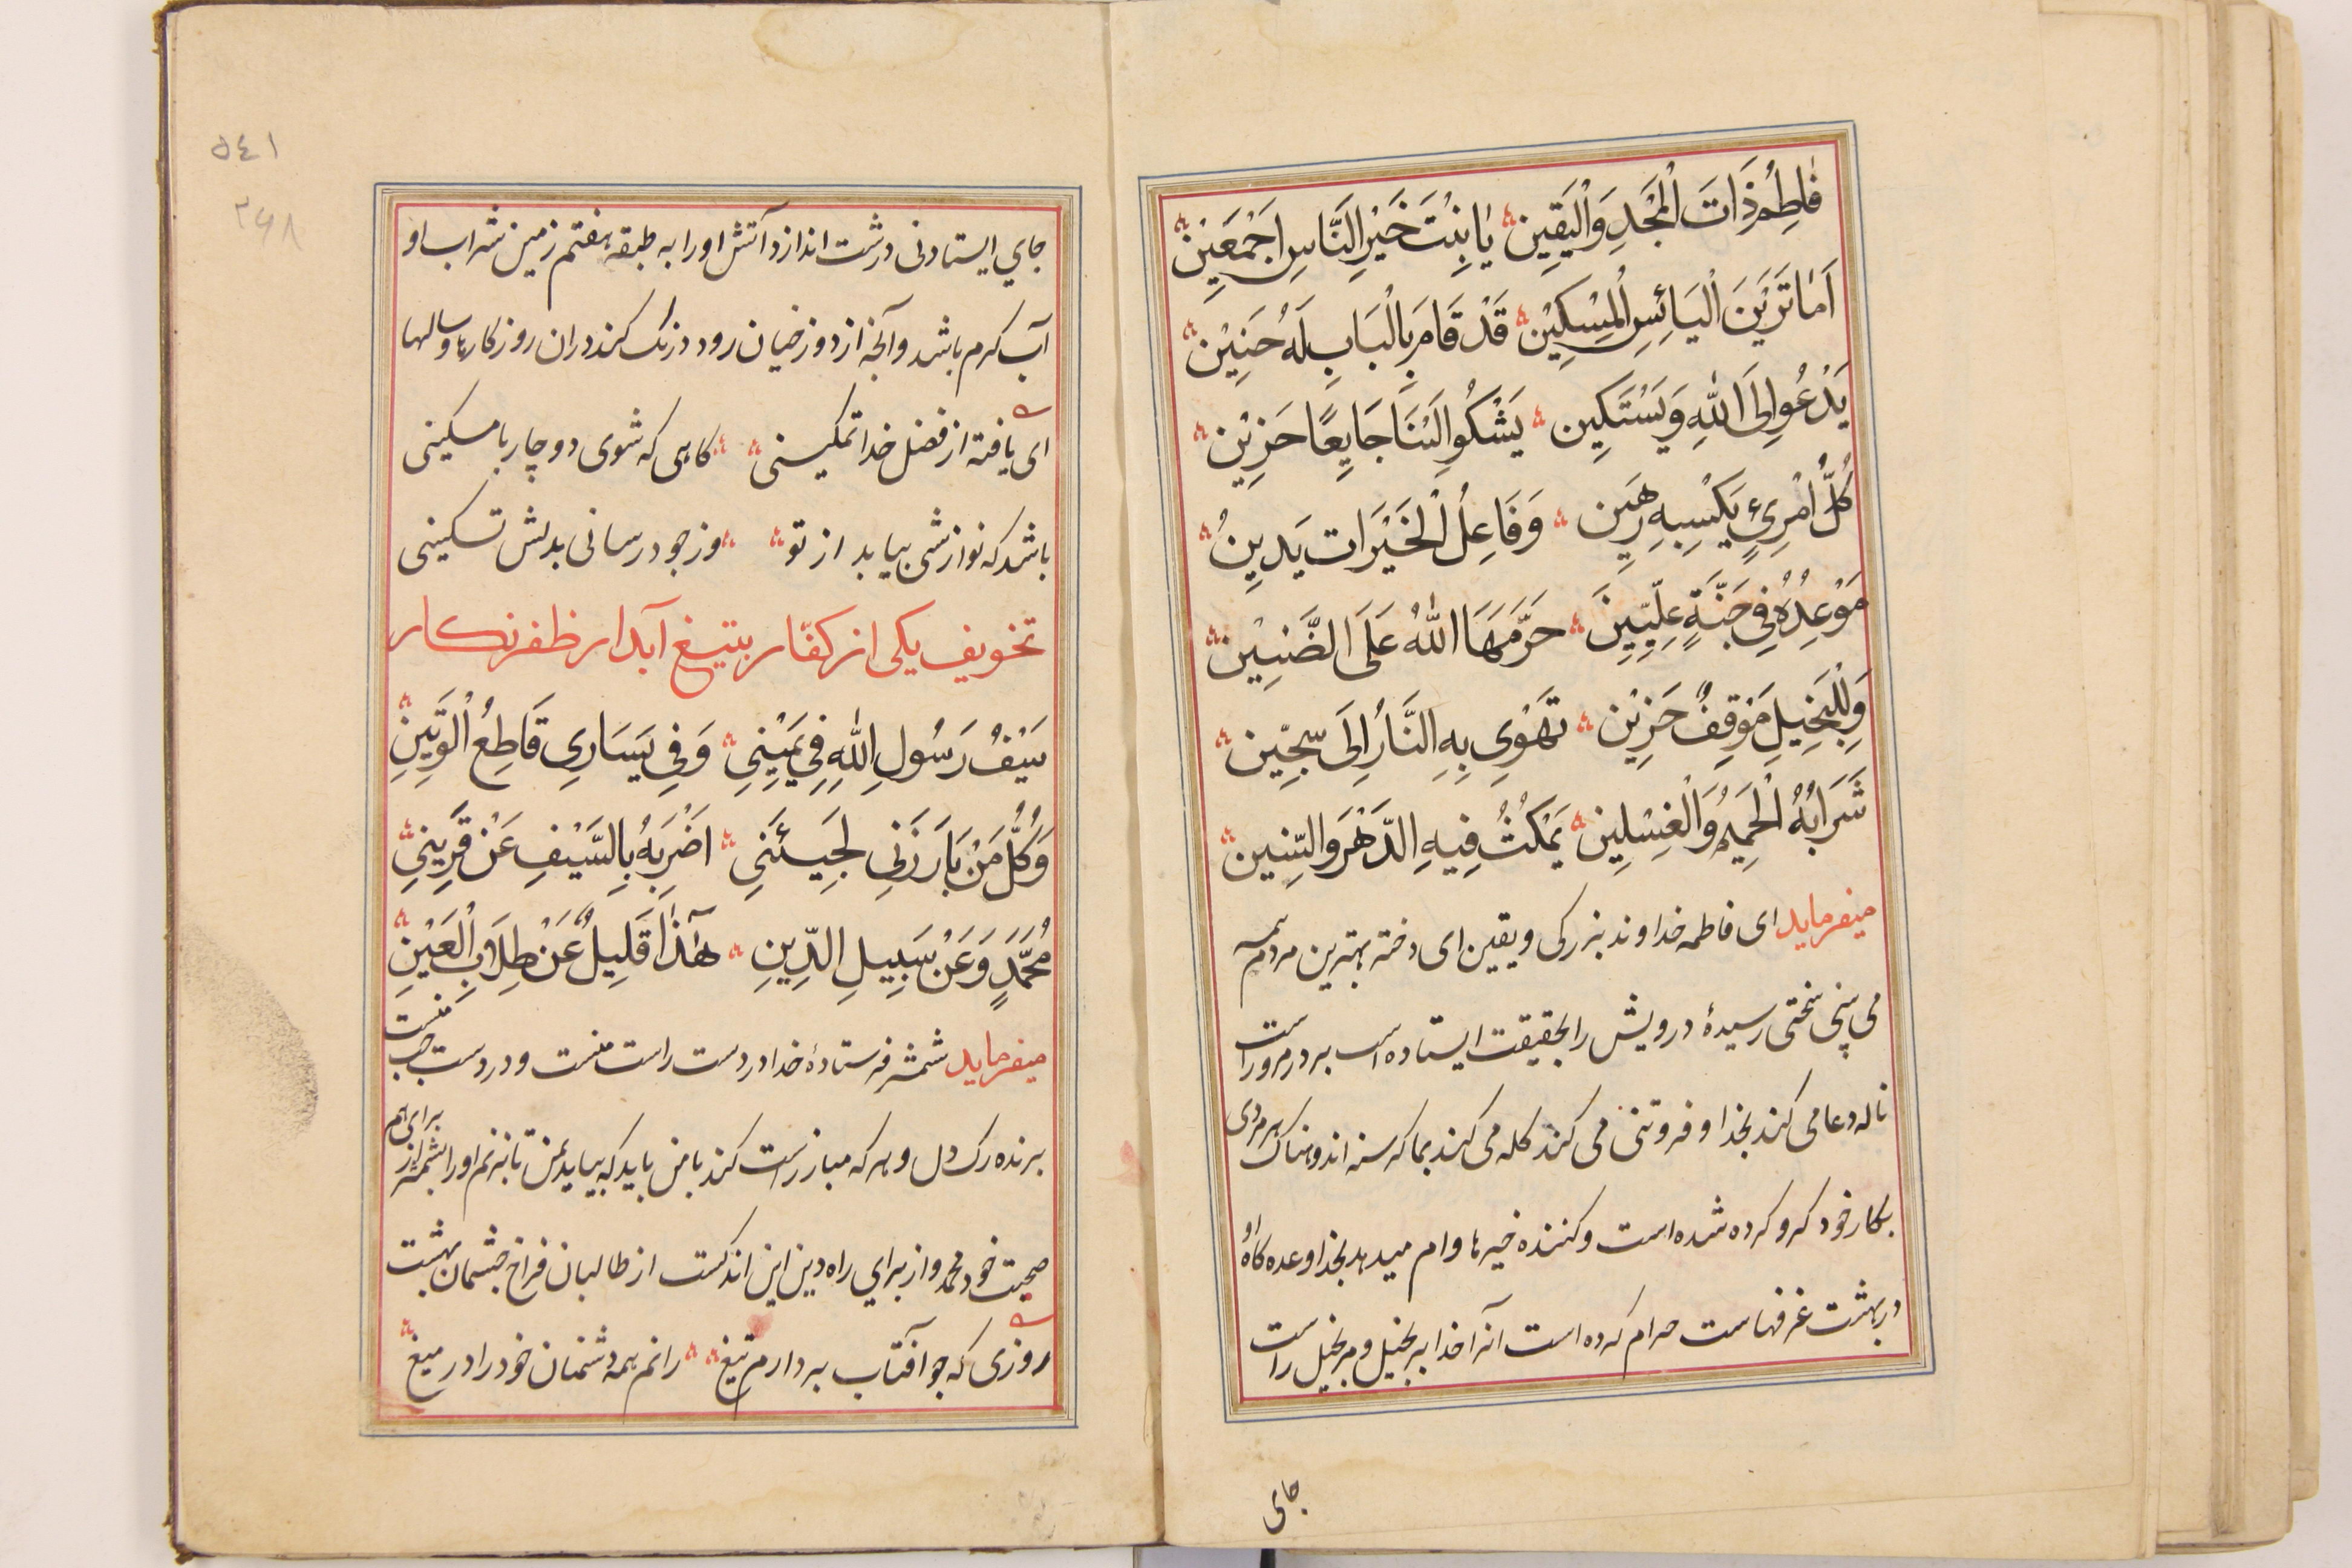 فَاطِمُ ذَاتَ الْمَجْدِ وَالْيَقِينِ يَا بِنْتَ خَيْرِ النَّاسِ اَجْمَعِيْنَ
اَمَا تَرَيْنَ الْيَائِسِ الْمِسْكِيْنِ قَدْ قَامَ بِالْبَابِ لَهُ حَنِيْنٌ
يَدْعُو اِلَى اللهِ وَيَسْتَكِيْن يَشْكُو اِلَيْنَا جَايِعًا حَزِيْن
كُلُّ امْرِئٍ يَكْسِبِهِ رَهِيَن وَفَاعِلُ الْخَيْرَات يَدِينُ
مَوْعِدُهُ فِي جَنَّةٍ عِلِّيِّينَ حَرَّمَهَا اللهُ عَلَى الضَّنِيْن
وَلِلْبَخِيلِ مَوْقِفٌ حَزِيْن تَهْوِي بِهِ النَّارُ اِلَى سِجِّين
شَرَابُهُ الْحَمِيمُ وَالْغِسْلِين يَمْكُثُ فِيهِ الدَّهْرَ وَالسِّنِين
میفرماید ای فاطمه خداوند بزرکی و یقین ای دختر بهترین مردم همه
می بینی سختی رسیدهٔ درویش را بحقیقت ایستاده است بر در مر وراست
ناله دعا می کند بخدا و فروتنی می کند کله می کند بما کرسنه اندوهناک هر مردی
بکار خود کرو کرده شده است و کننده خیرها وام میدهد بخدا وعده کاه او
در بهشت غرفهاست حرام کرده است آنرا خدا بر بخیل و مر بخیل راست
جای
۵٤۱
۲۶۸
جاي ایستادنی درشت اندازد آتش او را به طبقه هفتم زمین شراب او
آب کرم باشد و آنچه از دوزخیان رود درنک کند در ان روزکارها و سالها
ای یافته از فضل خدا تمکینی کاهی که شوی دوچار با مسکینی
باشد که نوازشی بیابد از تو وز جود رسانی بدلش تسکینی
تخویف یکی از کفّار بتیغ آبدار ظفرنکار
سَيْفُ رَسُولِ اللهِ فِي يَمِيْنِي وَفِي يَسَارِي قَاطِعُ الْوَتِينِ
وَكُلُّ مَنْ بَارَزَنِي لِجَيئَنِي اَضْرِبَهُ بِالسَّيْفِ عَنْ قَرِينِي
مُحَمَّدٍ وَعَنْ سَبِيلِ الدِّينِ هٰذَا قَلِيلٌ عَنْ طِلَابِ الْعَيْنِ
میفرماید شمشیر فرستادهٔ خدا در دست راست منست و در دست چپ منست
برنده رک دل و هر که مبارزت کند با من باید که بیاید بمن تا بزنم او را بشمشیر از برای هم
صحبت خود محمد و از برای راه دین این اندکست از طالبان فراخ چشمان بهشت
روزی که چو آفتاب بردارم تیغ رانم همه دشمنان خود را در میغ